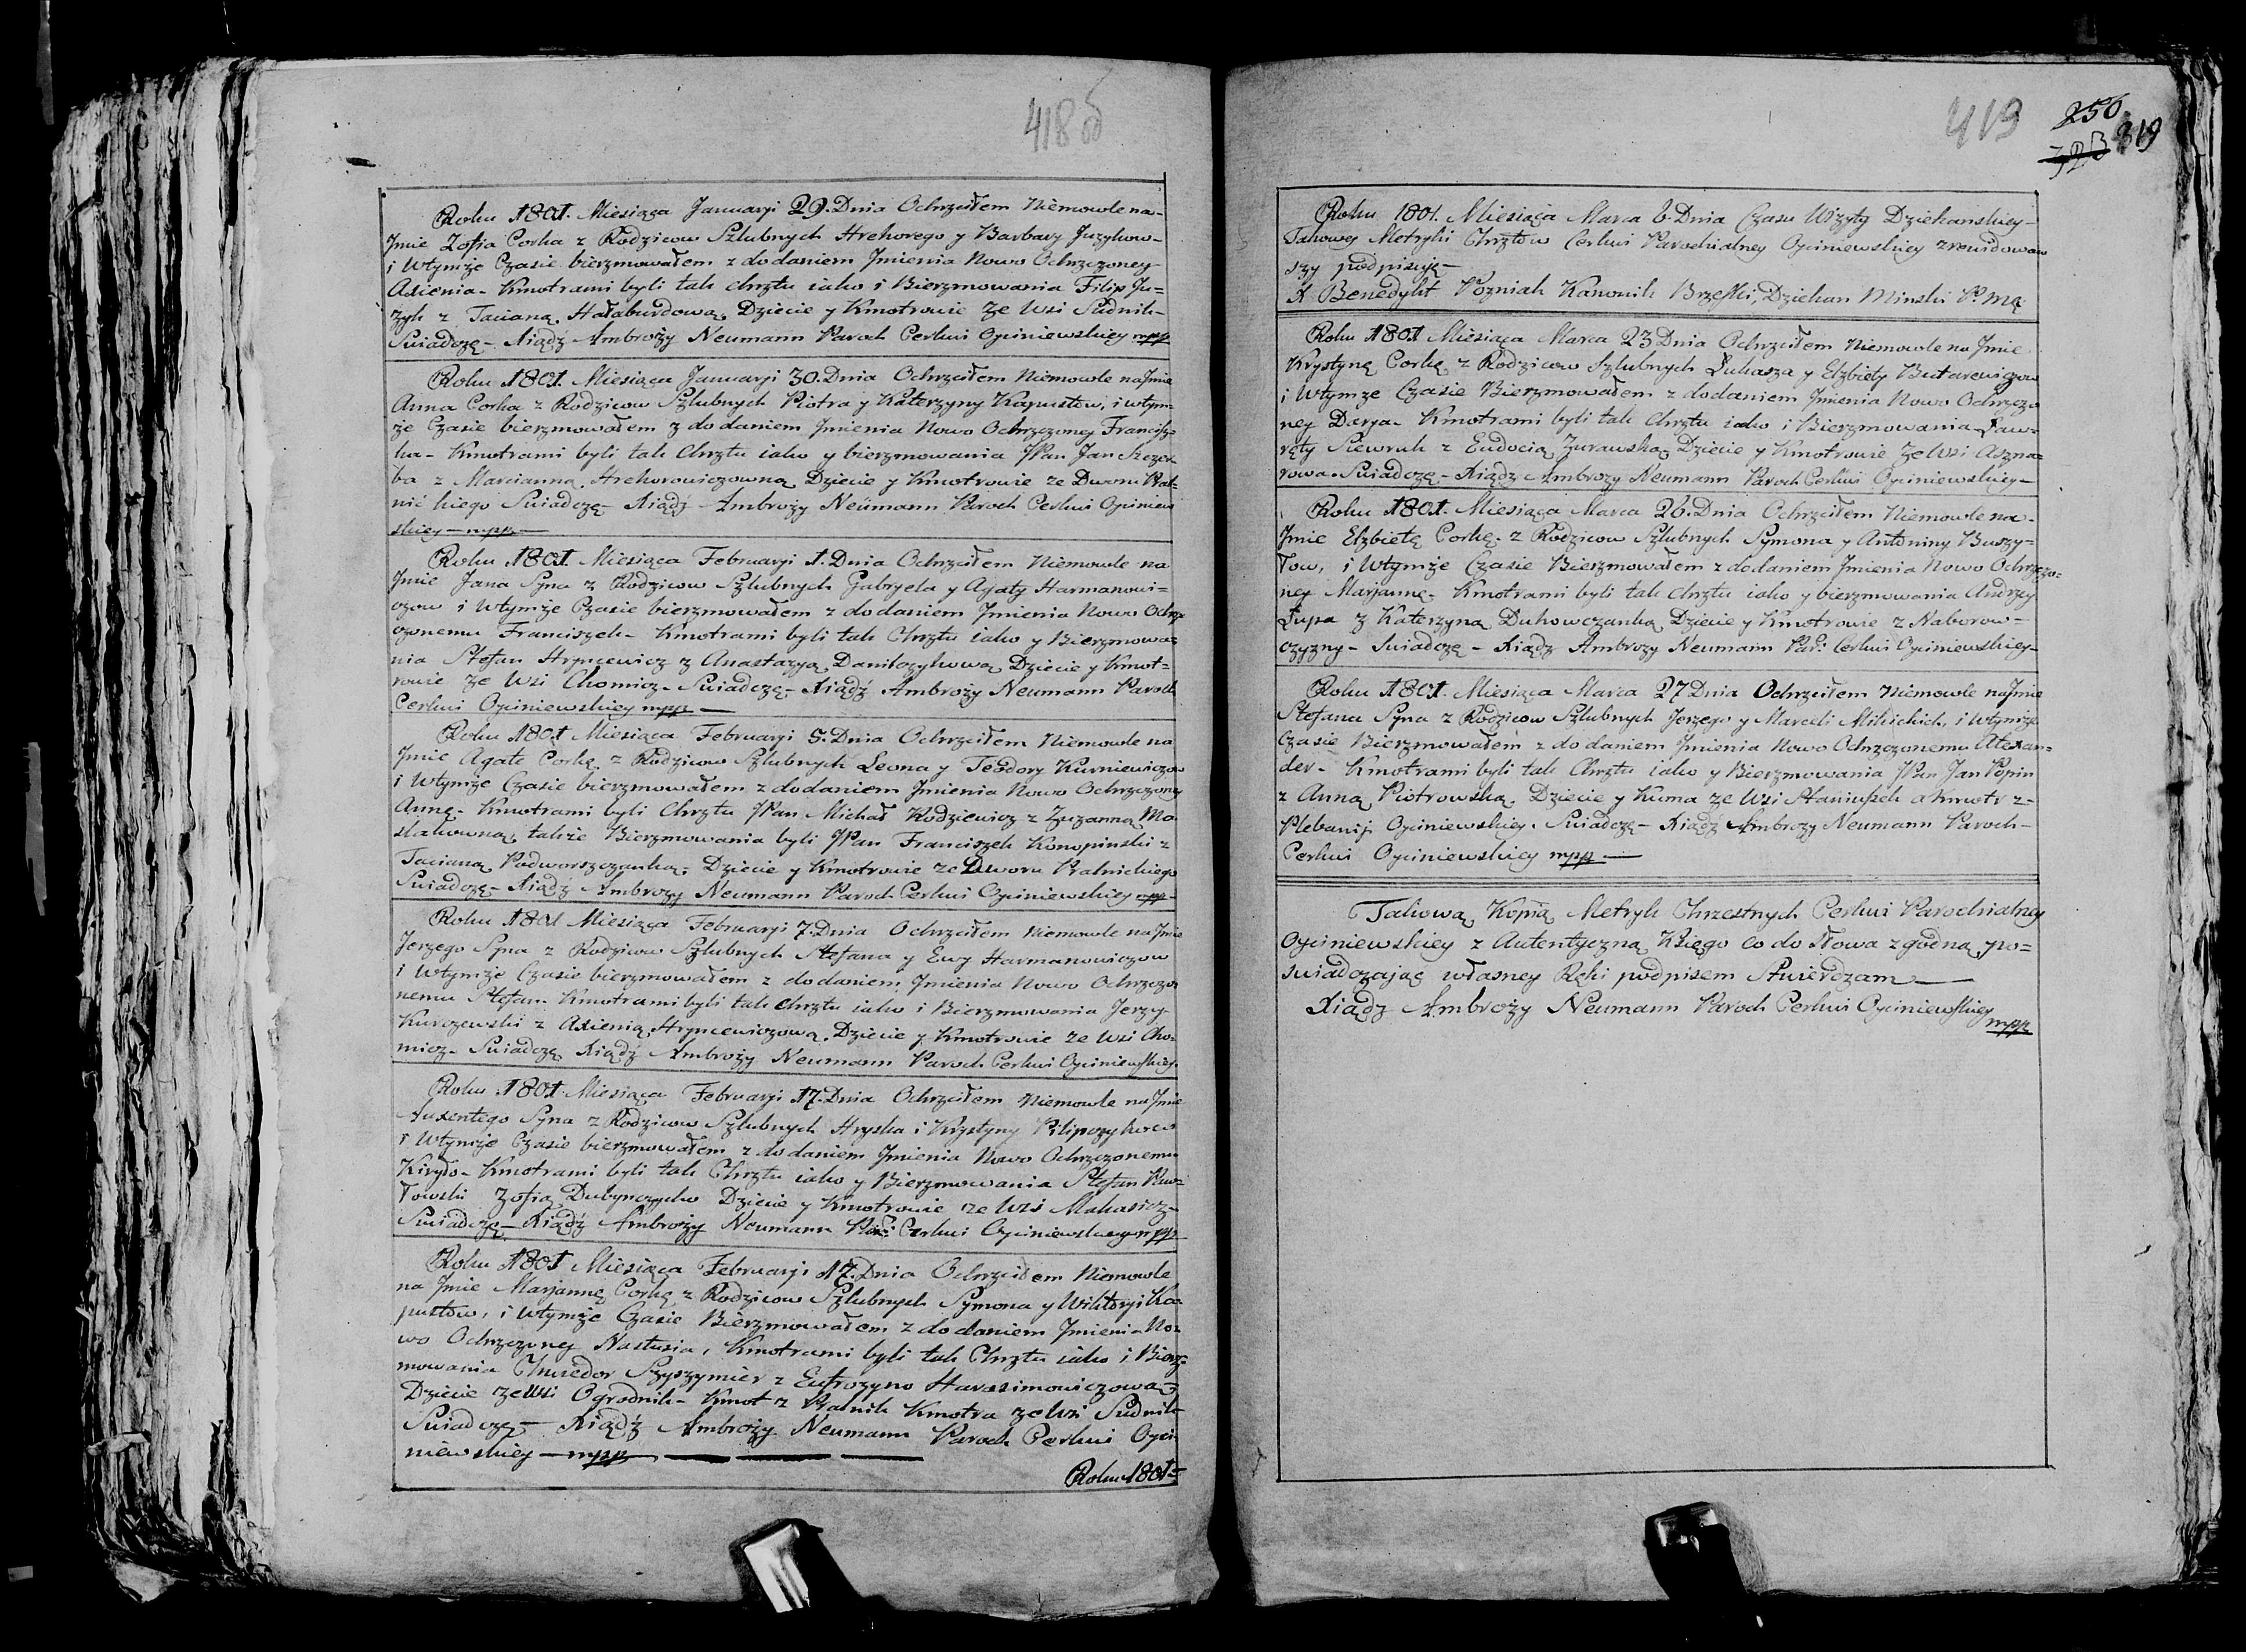 418 об
Roku 1801. Miesiąca Januaryi 29. Dnia Ochrzciłem Niemowle na-
Jmie Zofia Corka z Rodzicow Szlubnych Hrehorego y Barbary Juzykow-
i Wtymże Czasie bierzmowałem z dodaniem Jmienia Nowo Ochrzczoney
Axienia - Kmotrami byli tak chrztu iako i Bierzmowania Filip Ju=
zyk z Tacianą Hałaburdową, Dziecie y Kmotrowie ze Wsi Sudnik-
Swiadczę - Xiądz Ambroży Neumann Paroch Cerkwi Ogciniewskiey mpp
Roku 1801. Miesiąca Januaryi 30. Dnia Ochrzciłem Niemowle na Jmie
Anna Corka z Rodzicow Szlubnych Piotra y Katerzyny Kapustów, i wtym=
że Czasie bierzmowałem z dodaniem Jmienia Nowo Ochrzczoney Francisz=
ka - Kmotrami byli tak Chrztu iako y bierzmowania JPan Jan
ba z Marcianną Hrehorowiczowną Dziecie y Kmotrowie ze Dworu Rat=
nickiego Swiadczę - Xiądz Ambroży Neumann Paroch Cerkwi Ogciniew
skiey - mpp -
Roku 1801. Miesiąca Februaryi 1. Dnia Ochrzciłem Niemowle na
Jmie Jana Syna z Rodzicow Szlubnych Gabryela y Agaty Harmanowi=
czow i Wtymże Czasie bierzmowałem z dodaniem Jmienia Nowo Ochrz
czonemu Franciszek - Kmotrami byli tak Chrztu iako y Bierzmowa=
nia Stefan Hryncewicz z Anastazyą Daniłczykową, Dziecie y Kmot=
rowie ze Wsi Chomicz - Swiadczę - Xiądz Ambroży Neumann Paroch
Cerkwi Ogciniewskiey mpp -
Roku 1801 Miesiąca Februaryi 5. Dnia Ochrzciłem Niemowle na
Jmie Agatę Corkę z Rodzicow Szlubnych Leona y Teodory Kurniewiczow
i Wtymże Czasie bierzmowałem z dodaniem Jmienia Nowo Ochrzczoney
Annę - Kmotrami byli Chrztu JPan Michał Rodziewicz z Zuzanną Mo
szkowną, także Bierzmowania byli JPan Franciszek Konopinski z
Tacianą Podworszczanką, Dziecie y Kmotrowie ze Dworu Ratnickiego
Swiadczę - Xiądz Ambroży Neumann Paroch Cerkwi Ogciniewskiey mpp -
Roku 1801 Miesiąca Februaryi 7. Dnia Ochrzciłem Niemowle na Jmie
Jerzego Syna z Rodzicow Szlubnych Stefana y Ewy Harmanowiczow
i Wtymże Czasie bierzmowałem z dodaniem Jmienia Nowo Ochrzczo
nemu Stefan - Kmotrami byli tak chrztu iako i Bierzmowania Jerzy
Kurczewski z Axienią Hryncewiczową, Dziecie y Kmotrowie ze Wsi Cho=
micz - Swiadczę Xiądz Ambroży Neumann Paroch Cerkwi Ogciniewskiey
Roku 1801. Miesiąca Februaryi 17. Dnia Ochrzciłem Niemowle na Jmie
Auxentego Syna z Rodzicow Szlubnych Hryska i Krystyny Pilipczykow
i Wtymże Czasie bierzmowałem z dodaniem Jmienia Nowo Ochrzczonemu
Kiryło - Kmotrami byli tak Chrztu iako y Bierzmowania Stefan Paw=
łowski Zofią Dubynczycho Dziecie y Kmotrowie ze Wsi Makasicz-
Swiadczę - Xiądz Ambroży Neumann Par: Cerkwi Ogciniewskiey mpp
Roku 1801 Miesiąca Februaryi 17. Dnia Ochrzciłem Niemowle
na Jmie Maryannę Corkę z Rodzicow Szlubnych Symona y Wiktoryi Ka=
pustow, i Wtymże Czasie Bierzmowałem z dodaniem Jmienia No=
wo Ochrzczoney Nastusia, Kmotrami byli tak Chrztu iako i Bierz=
mowania Chwiedor Szyszymier z Eufrozyno Harasimowiczową
Dziecie ze Wsi Ogrodnik - Kmot z Ratnik Kmotra ze Wsi Sudnik
Swiadczę - Xiądz Ambroży Neumann Paroch Cerkwi Ogci=
niewskiey - mpp
Roku 1801=
419
250
323 319
Roku 1801. Miesiąca Marca 6. Dnia Czasu Wizyty Dziekanskiey-
Takowey Metryki Chrztow Cerkwi Parochialney Ogciniewskiey zrewidowaw
szy podpisuję -
X Benedykt Pozniak Kanonik Brzeski, Dziekan Minski P. mą
Roku 1801 Miesiąca Marca 23 Dnia Ochrzciłem Niemowle na Jmie
Krystynę Corkę z Rodzicow Szlubnych Łukasza y Elzbiety Butarewiczow
i Wtymże Czasie Bierzmowałem z dodaniem Jmienia Nowo Ochrzczo
ney Darya - Kmotrami byli tak Chrztu iako i Bierzmowania Ław=
ręty Siewruk z Eudocią Żurawską Dziecie y Kmotrowie ze Wsi Aszna=
rowa - Swiadczę - Xiądz Ambroży Neumann Paroch Cerkwi Ogciniewskiey -
Roku 1801. Miesiąca Marca 26. Dnia Ochrzciłem Niemowle na-
Jmie Elzbietę Corkę z Rodzicow Szlubnych Symona y Antoniny Buszy=
łow, i Wtymże Czasie Bierzmowałem z dodaniem Jmienia Nowo Ochrzczo=
ney Marjannę - Kmotrami byli tak chrztu iako y bierzmowania Andrzey
Łupa z Katerzyną Duhowczanką Dziecie y Kmotrowie z Naborow=
czyzny - Swiadczę - Xiądz Ambroży Neumann Par: Cerkwi Ogciniewskiey -
Roku 1801. Miesiąca Marca 27 Dnia Ochrzciłem Niemowle na Jmie
Stefana Syna z Rodzicow Szlubnych Jerzego y Marceli Milickich, i Wtymże
Czasie Bierzmowałem z dodaniem Jmienia Nowo Ochrzczonemu Alexan=
der - Kmotrami byli tak Chrztu iako y Bierzmowania JPan Jan Popin
z Anną Piotrowską, Dziecie y Kuma ze Wsi Staniuszek a Kmotr z-
Plebanij Ogciniewskiey. Swiadczę - Xiądz Ambroży Neumann Paroch -
Cerkwi Ogciniewskiey mpp -
Takową Kopią Metryk Chrzestnych Cerkwi Parochialney
Ogciniewskiey z Autentyczną Księgo co do słowa zgodną po=
swiadczając własney Ręki podpisem Stwierdzam -
Xiądz Ambroży Neumann Paroch Cerkwi Ogciniewskiey
mpp